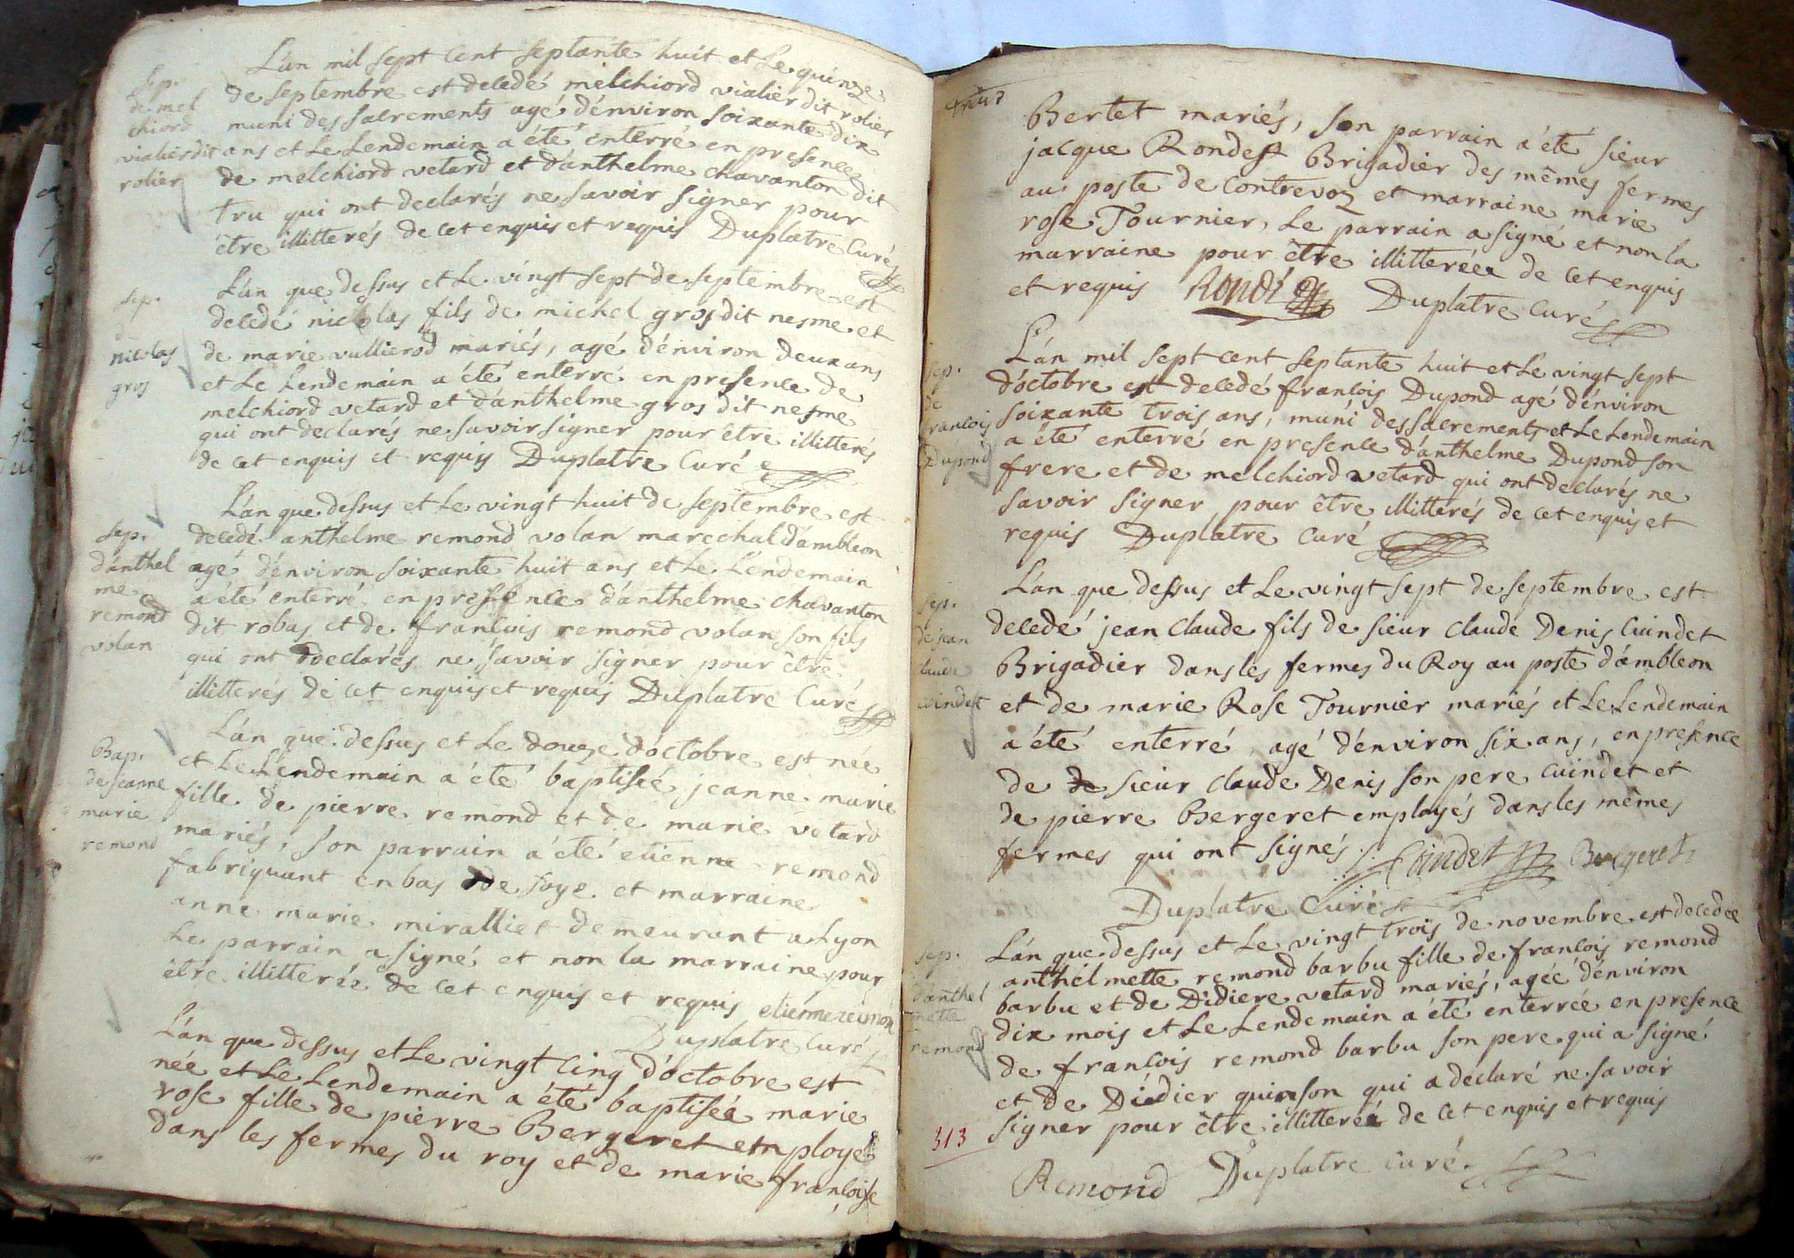 L'an mil sept cent septante huit et Le quinze
de septembre est decedé melchiord vialier dit rolier
muni des sacrements agé d'environ soixante dix
ans et Le Lendemain a été enterré en presence
de melchiord vetard et d'anthelme chavanton dit
tru qui ont declarés ne savoir signer pour
être illitterés de cet enquis et requis Duplatre Curé
Sep.
de mel
chiord
vialier dit
rolier
L'an que dessus et Le vingt sept de septembre est
decedé nicolas fils de michel gros dit nesme et
de marie vullierod mariés, agé d'environ deux ans
et Le Lendemain a été enterré en presence de
melchiord vetard et d'anthelme gros dit nesme
qui ont declarés ne savoir signer pour être illitterés
de cet enquis et requis Duplatre Curé
Sep.
d
nicolas
gros
L'an que dessus et Le vingt huit de septembre est
decedé anthelme remond volan marechal d'ambleon
agé d'environ soixante huit ans et Le Lendemain
a été enterré en presence d'anthelme chavanton
dit robas et de francois remond volan son fils
qui ont declarés ne savoir signer pour être
illitterés de cet enquis et requis Duplatre Curé
Sep.
d'anthel
me
remond
volan
L'an que dessus et Le douze d'octobre est née
et Le Lendemain a été baptisée jeanne marie
fille de pierre remond et de marie vetard
mariés, son parrain a été etienne remond
fabriquant en bas de soye et marraine
anne marie miralliet demeurant a Lyon
Le parrain a signé et non la marraine pour
être illitterée de cet enquis et requis
Duplatre Curé
Bap.
de jeanne
marie
remond
L'an que dessus et Le vingt cinq d'octobre est
née et Le Lendemain a été baptisée marie
rose fille de pierre Bergeret employé
dans les fermes du roy et de marie françoise
Bertet mariés, son parrain a été sieur
jacque Rondest Brigadier des mêmes fermes
au poste de Contrevoz et marraine marie
rose Tournier, Le parrain a signé et non la
marraine pour être illitterée de cet enquis
et requis Rondé Duplatre Curé
L'an mil sept cent septante huit et Le vingt sept
d'octobre est decedé francois Dupond agé d'environ
soixante trois ans, muni des sacrements et Le Lendemain
a été enterré en presence d'anthelme Dupond son
frere et de melchiord vetard qui ont declarés ne
savoir signer pour être illitterés de cet enquis et
requis Duplatre Curé
Sep.
de
francois
Dupond
L'an que dessus et Le vingt sept de septembre est
decedé jean claude fils de sieur claude Denis Cuindet
Brigadier dans les fermes du Roy au poste d'ambleon
et de marie Rose Tournier mariés et Le Lendemain
a été enterré agé d'environ six ans, en presence
de de sieur claude Denis son pere cuindet et
de pierre Bergeret employés dans les mêmes
fermes qui ont signés. Cuindet Bergeret
Duplatre Curé
Sep.
de jean
claude
cuindet
L'an que dessus et Le vingt trois de novembre est decedée
anthelmette remond barbu fille de francois remond
barbu et de Didiere vetard mariés, agée d'environ
dix mois et Le Lendemain a été enterrée en presence
de francois remond barbu son pere qui a signé
et de Didier quinson qui a declaré ne savoir
signer pour être illitteré de cet enquis et requis
Remond Duplatre Curé
Sep.
d'anthel
mette
remond
313